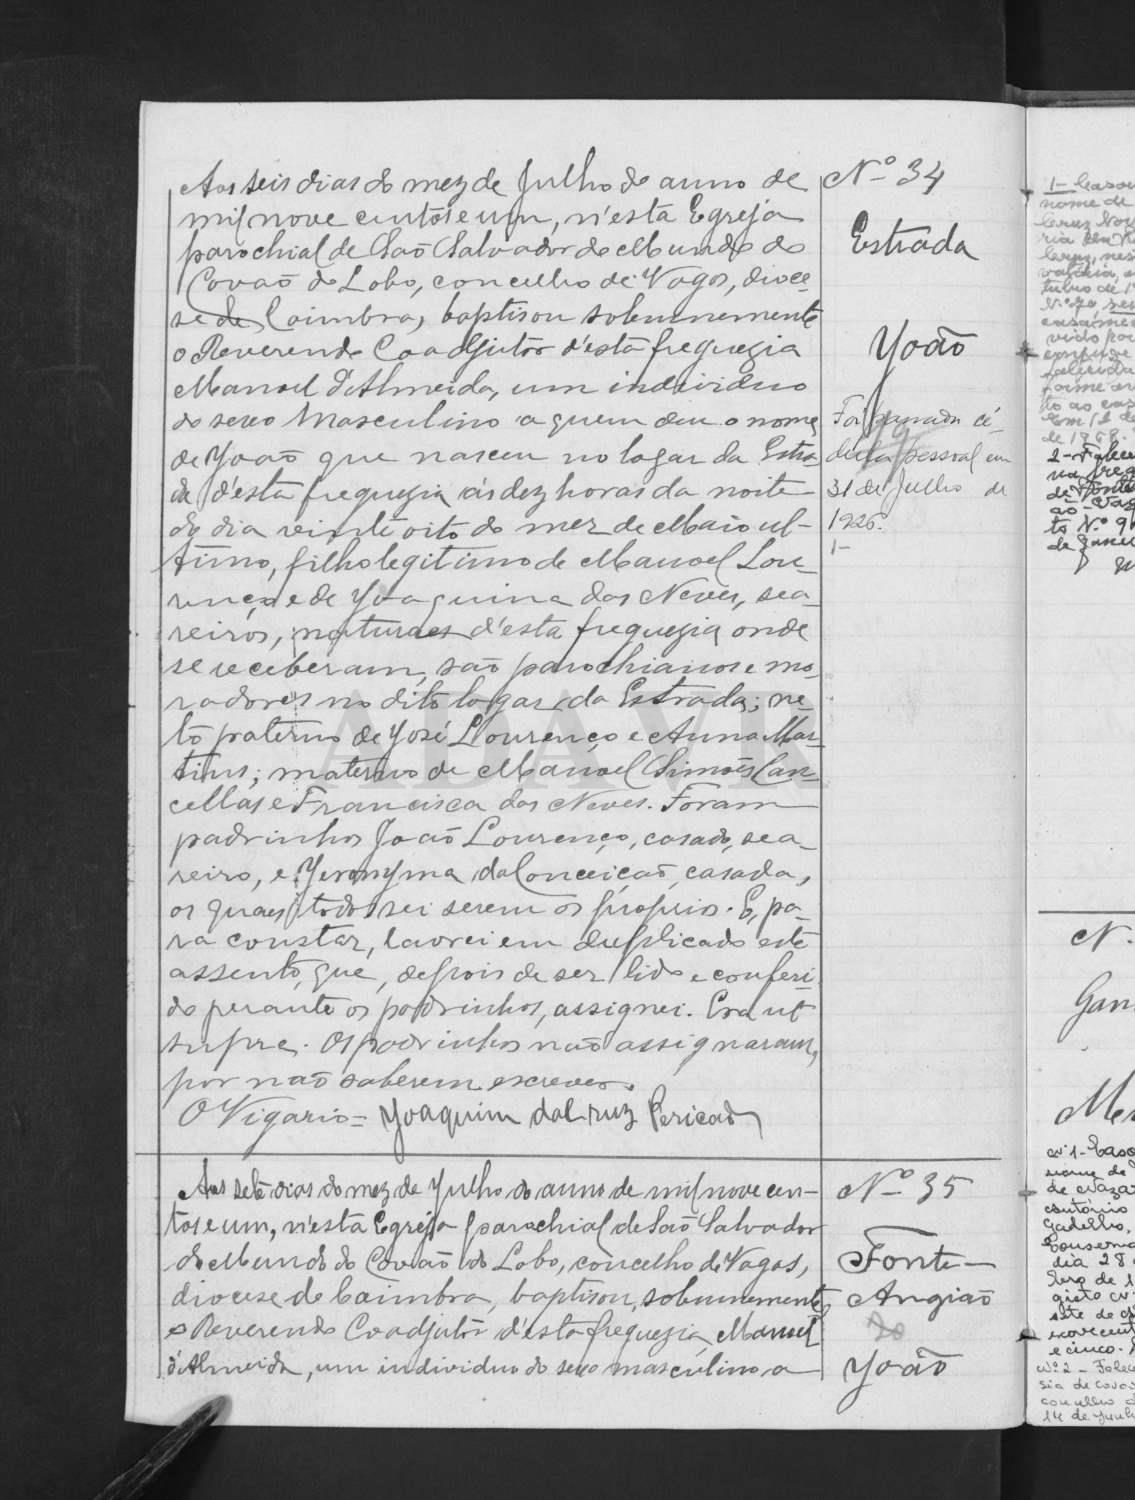 Nº 34
Estrada
João
Foi passada cé-
dula pessoal em
31 de Julho de
1926.
1-
Aos seis dias do mez de Julho do anno de
mil nove centos e um, n'esta Egreja
parochial de São Salvador do Mundo do
Covão do Lobo, concelho de Vagos, dioce-
se de Coimbra, baptisou solemnemente
o Reverendo Coadjutor d'esta freguezia
Manoel d'Almeida, um individuo
do sexo Masculino a quem deu o nome
de João que nasceu no logar da Estra-
da d'esta freguezia ás dez horas da noite
do dia vinte oito do mez de Maio ul-
timo, filho legitimo de Manoel Lou-
renço e de Joaquina das Neves, sea-
reiros, naturaes d'esta freguezia onde
se receberam, são parochianos e mo-
radores no dito logar da Estrada; ne-
to paterno de José Lourenço e Anna Mar-
tins; materno de Manoel Simões Can-
cellas e Francisca das Neves. Foram
padrinhos João Lourenço, casado, sea-
reiro, e Jeronyma da Conceição, casada,
os quaes todos sei serem os proprios. E, pa-
ra constar, lavrei em duplicado este
assento, que, depois de ser lido e conferi-
do perante os padrinhos, assignei. Era ut
supra. Os padrinhos não assignaram,
por não saberem escrever.
O Vigario = Joaquim da Cruz Pericão
Nº 35
Fonte-
Angião
João
Aos sete dias do mez de Julho do anno de mil nove cen-
tos e um, n'esta Egreja parochial de São Salvador
do Mundo do Covão do Lobo, concelho de Vagos,
diocese de Coimbra, baptisou, solemnemente,
o Reverendo Coadjutor d'esta freguezia, Manoel
d'Almeida, um individuo do sexo masculino a
ADAVR